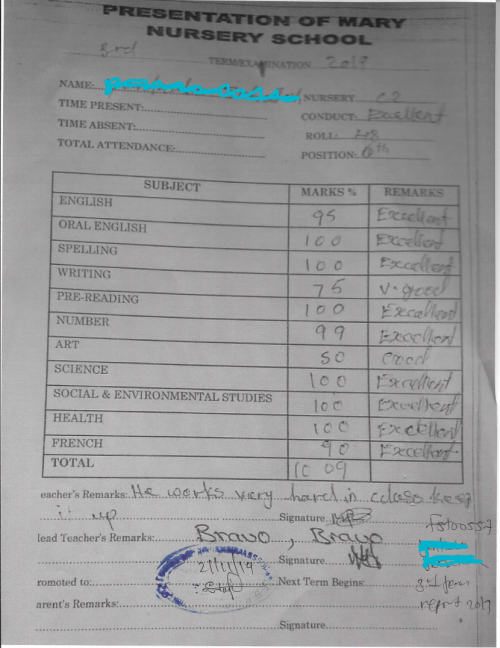 PRESENTATION OF MARY
NURSERY SCHOOL
3rd TERM/EXAMINATION 2019
NAME: NURSERY C2
TIME PRESENT: CONDUCT: Excellent
TIME ABSENT: ROLL:
TOTAL ATTENDANCE: POSITION: 6th
SUBJECT MARKS % REMARKS
ENGLISH 95 Excellent
ORAL ENGLISH 100 Excellent
SPELLING 100 Excellent
WRITING 75 V. good
PRE-READING 100 Excellent
NUMBER 99 Excellent
ART 50 Good
SCIENCE 100 Excellent
SOCIAL & ENVIRONMENTAL STUDIES 100 Excellent
HEALTH 100 Excellent
FRENCH 90 Excellent
TOTAL 1009
eacher's Remarks: He works very hard in class keep
it up Signature
lead Teacher's Remarks: Bravo, Bravo
Signature
romoted to: Next Term Begins:
arent's Remarks: report 2019
Signature